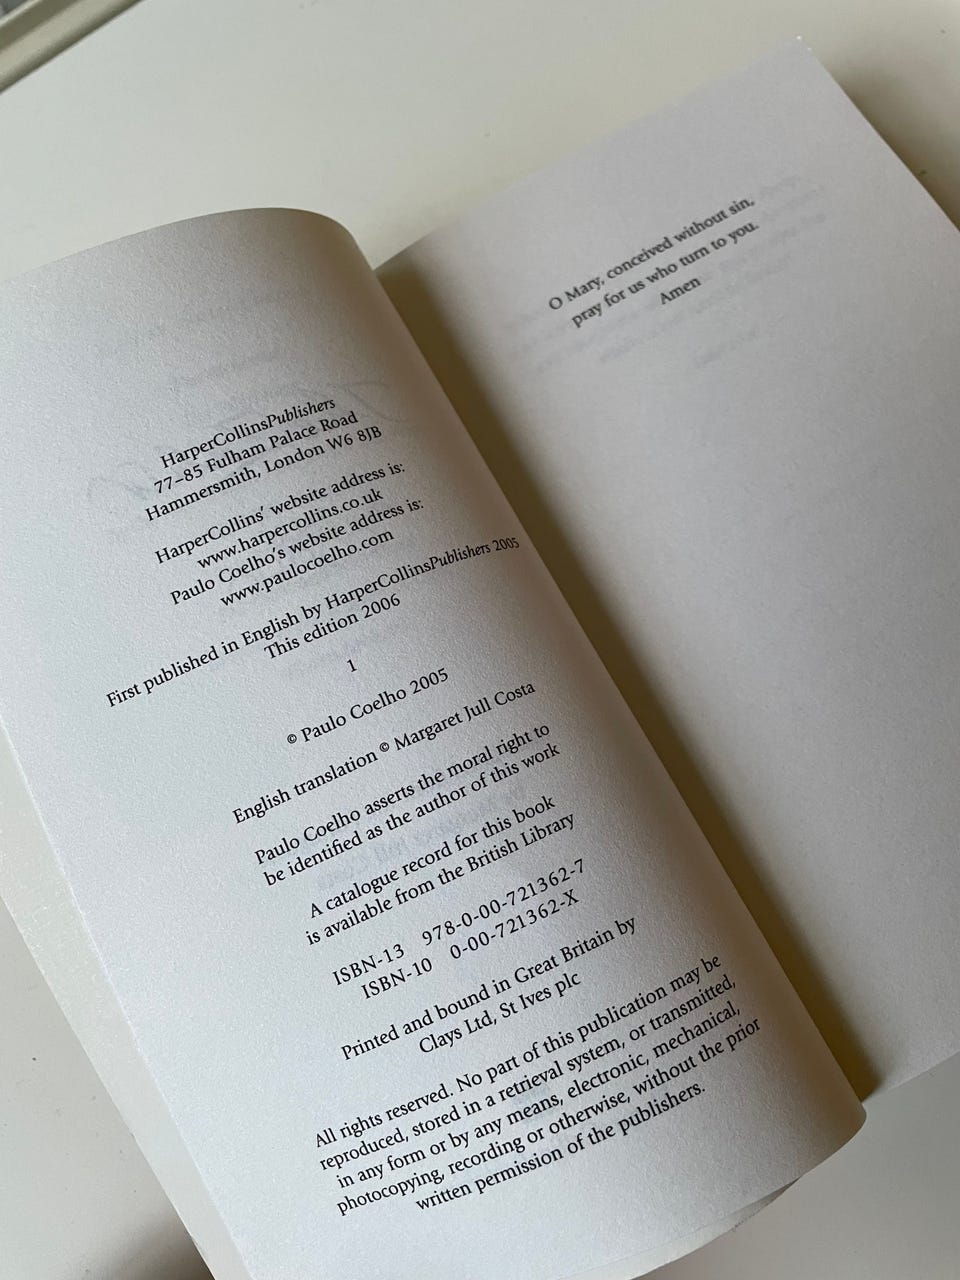 HarperCollinsPublishers
77–85 Fulham Palace Road
Hammersmith, London W6 8JB
HarperCollins' website address is:
www.harpercollins.co.uk
Paulo Coelho's website address is:
www.paulocoelho.com
First published in English by HarperCollinsPublishers 2005
This edition 2006
1
© Paulo Coelho 2005
English translation © Margaret Jull Costa
Paulo Coelho asserts the moral right to
be identified as the author of this work
A catalogue record for this book
is available from the British Library
ISBN-13 978-0-00-721362-7
ISBN-10 0-00-721362-X
Printed and bound in Great Britain by
Clays Ltd, St Ives plc
All rights reserved. No part of this publication may be
reproduced, stored in a retrieval system, or transmitted,
in any form or by any means, electronic, mechanical,
photocopying, recording or otherwise, without the prior
written permission of the publishers.
O Mary, conceived without sin,
pray for us who turn to you.
Amen